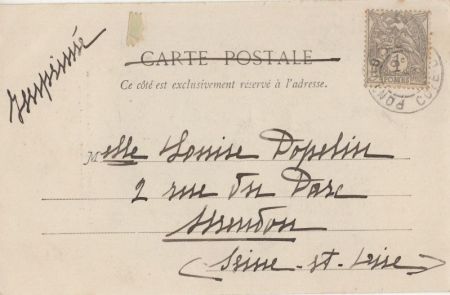 Imprimée
CARTE POSTALE
Ce côté est exclusivement réservé à l'adresse.
Melle Louise Dopelin
2 rue du Parc
Meudon
(Seine-et-Oise)